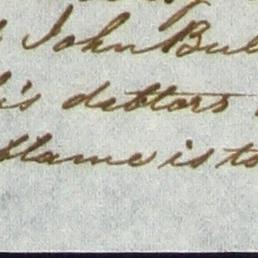 John Bul
his debtors
blame is to